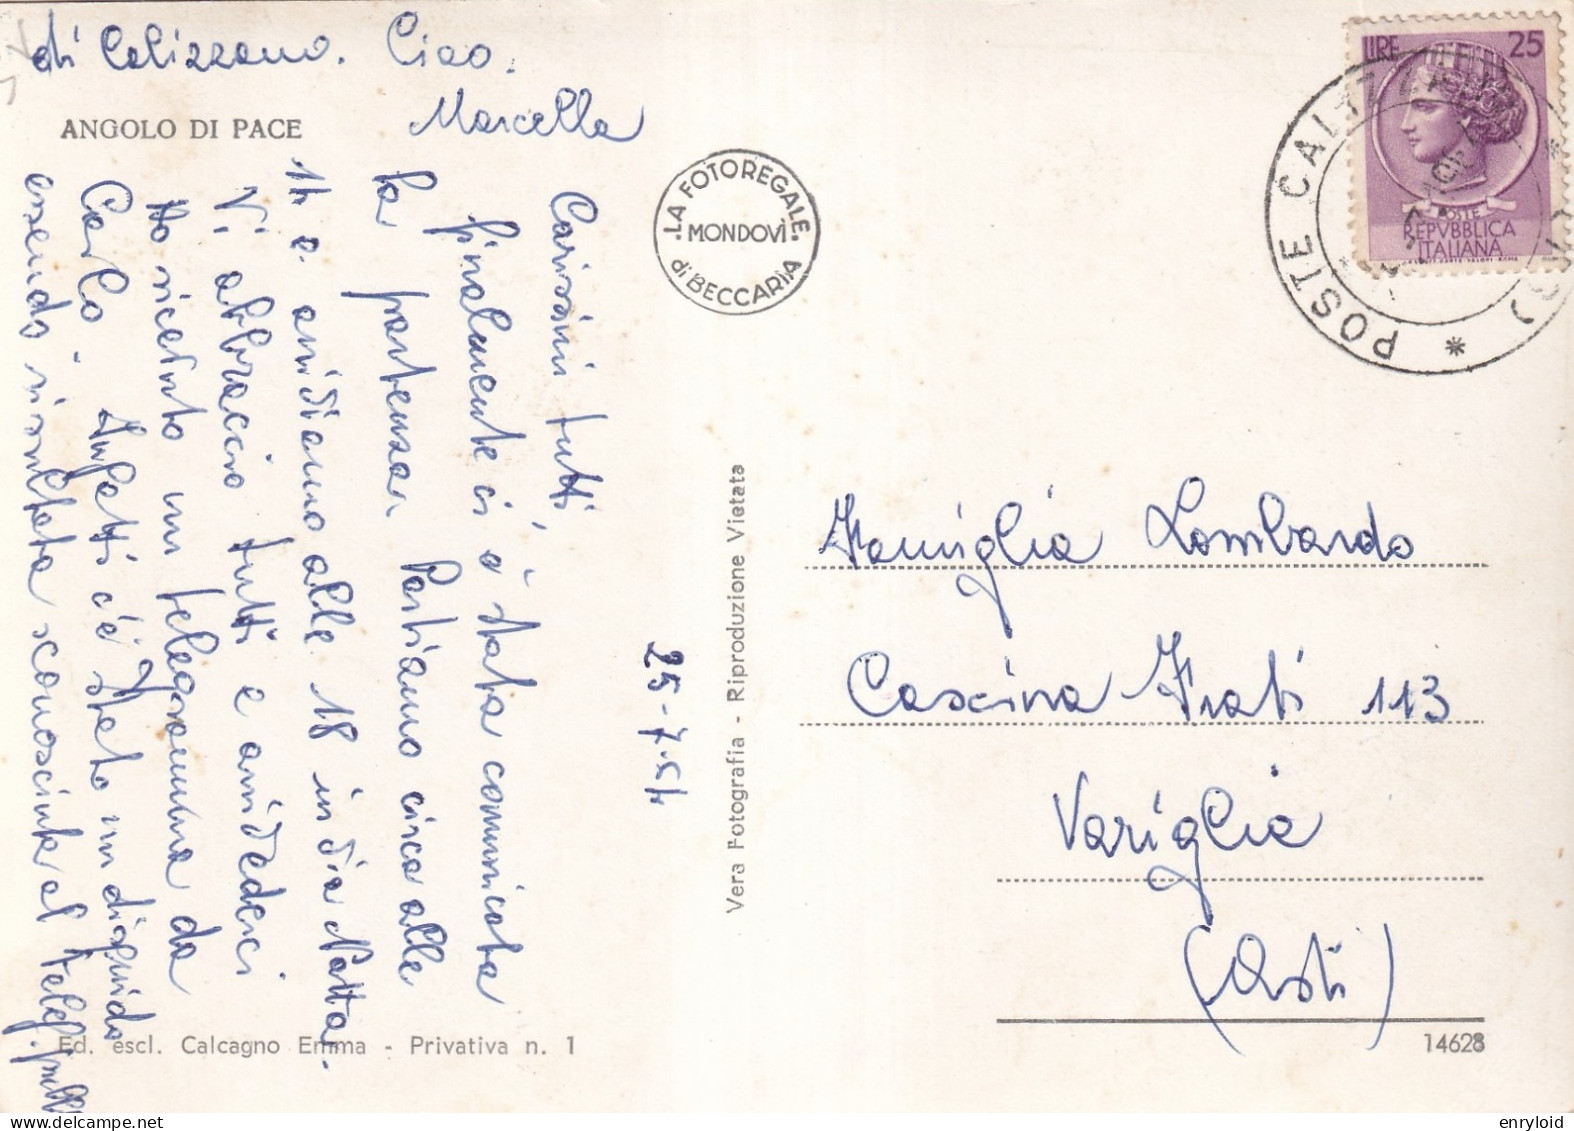 di Calizzano. Ciao.
Marcella
ANGOLO DI PACE
Carissimi tutti,
finalmente ci è stata comunicata
la partenza. Partiamo circa alle
14 e arriviamo alle 18 in via Natta.
Vi abbraccio tutti e arrivederci
Ho ricevuto un telegramma da
Carlo. Infatti c'è stato un disguido
essendo risultata sconosciuta al telef. quella
LA FOTOREGALE
MONDOVÌ
di BECCARIA
25-7-54
Vera Fotografia - Riproduzione Vietata
LIRE 25
POSTE
REPVBBLICA
ITALIANA
POSTE CALIZZANO
Famiglia Lombardo
Cascina Frati 113
Variglia
(Asti)
Ed. escl. Calcagno Emma - Privativa n. 1
14628
enryloid